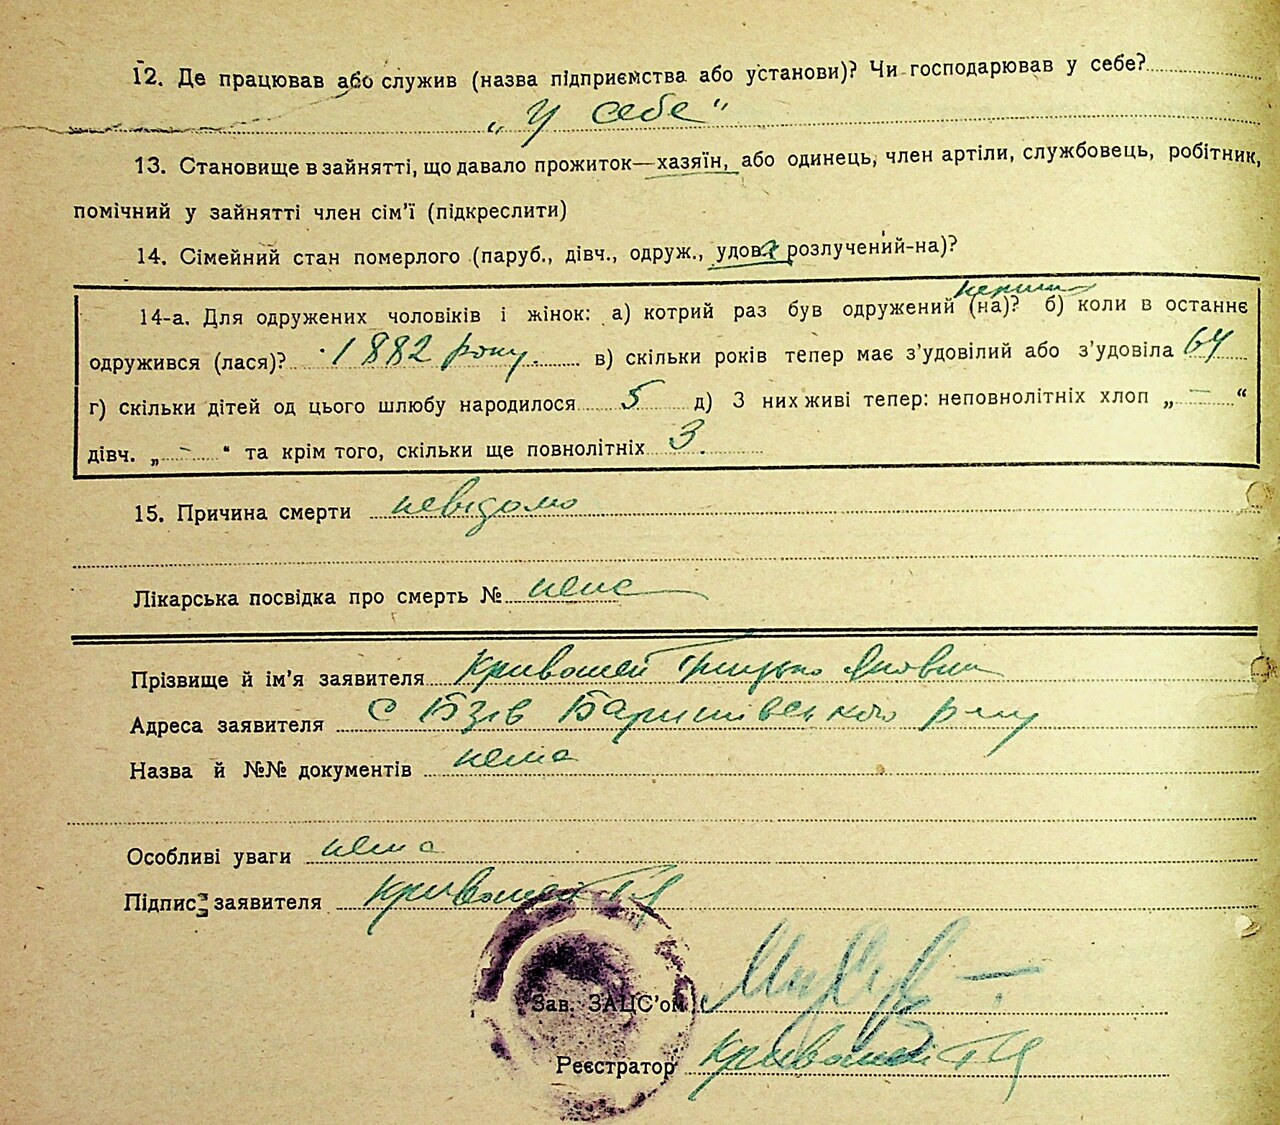 12. Де працював або служив (назва підприємства або установи)? Чи господарював у себе?
„У себе“
13. Становище в зайнятті, що давало прожиток—хазяїн, або одинець, член артіли, службовець, робітник,
помічний у зайнятті член сім’ї (підкреслити)
14. Сімейний стан померлого (паруб., дівч., одруж., удова розлучений-на)?
14-а. Для одружених чоловіків і жінок: а) котрий раз був одружений (на)? перший б) коли в останнє
одружився (лася)? 1882 року. в) скільки років тепер має з’удовілий або з’удовіла 64
г) скільки дітей од цього шлюбу народилося 5 д) З них живі тепер: неповнолітніх хлоп „ — “
дівч. „ - “ та крім того, скільки ще повнолітніх 3.
15. Причина смерти невідомо
Лікарська посвідка про смерть № нема
Прізвище й ім’я заявителя Кривошей Грицько Якович
Адреса заявителя с Бзів Баришівського р-ну
Назва й №№ документів нема
Особливі уваги нема
Підпис заявителя Кривошей ГЯ
Зав. ЗАЦС’ом
Реєстратор Кривошей ГЯ